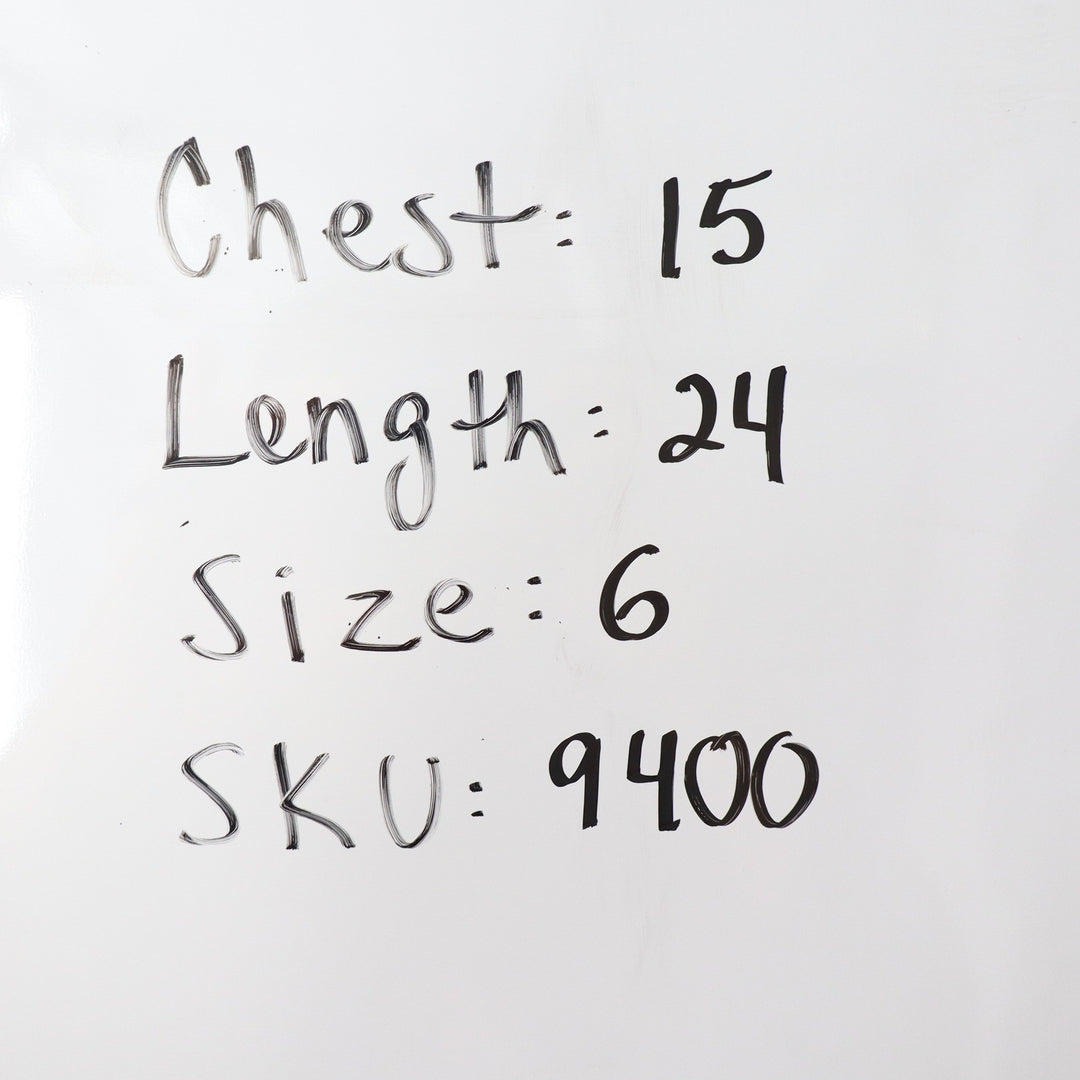 Chest: 15
Length: 24
Size: 6
SKU: 9400